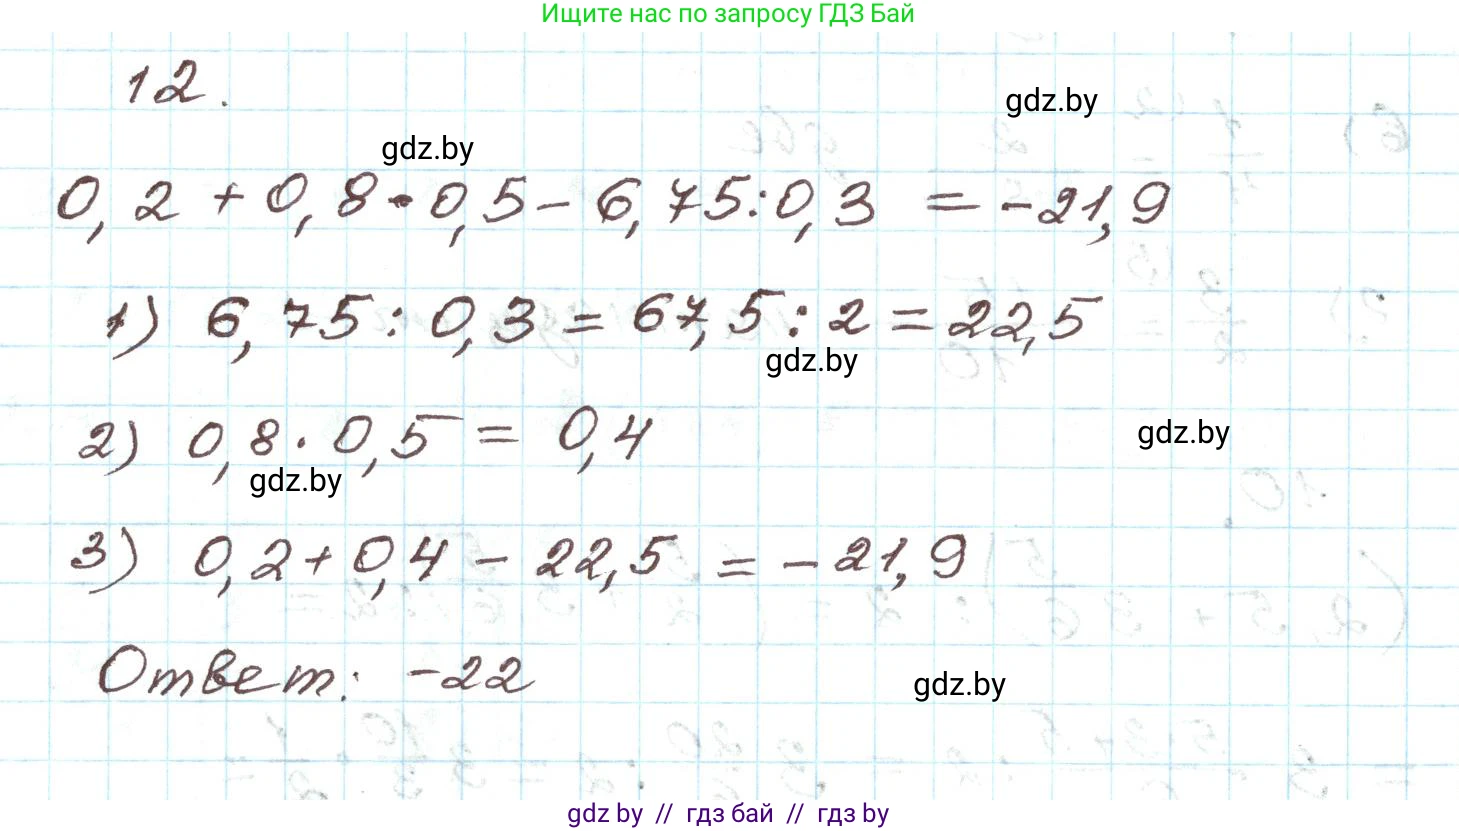 Ищите нас по запросу ГДЗ Бай
12.
gdz.by
gdz.by
0,2 + 0,8 · 0,5 - 6,75 : 0,3 = -21,9
1) 6,75 : 0,3 = 67,5 : 2 = 22,5
gdz.by
2) 0,8 · 0,5 = 0,4
gdz.by
gdz.by
3) 0,2 + 0,4 - 22,5 = -21,9
Ответ: -22
gdz.by
gdz.by // гдз бай // гдз by